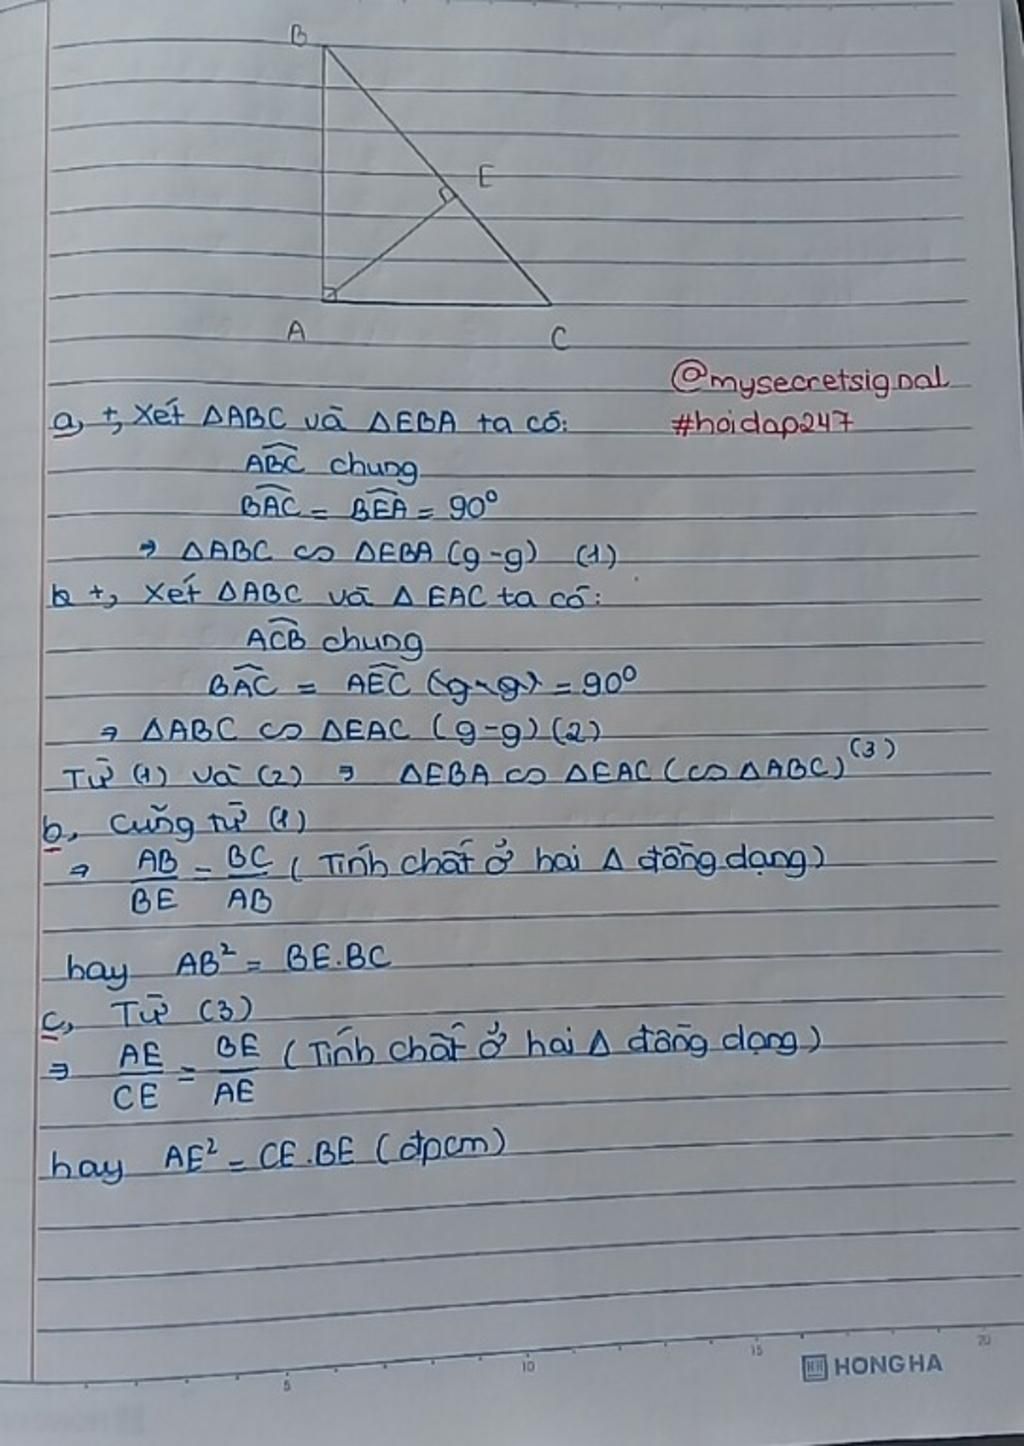 B
E
A
C
@mysecretsignal
#hoidap247
a, +, Xét ΔABC và ΔEBA ta có:
ABC chung
BAC = BEA = 90°
⇒ ΔABC ∽ ΔEBA (g-g) (1)
+, Xét ΔABC và ΔEAC ta có:
ACB chung
BAC = AEC (g-g) = 90°
⇒ ΔABC ∽ ΔEAC (g-g) (2)
Từ (1) và (2) ⇒ ΔEBA ∽ ΔEAC (∽ ΔABC) (3)
b, Cũng từ (1)
⇒ AB/BE = BC/AB (Tính chất ở hai Δ đồng dạng)
hay AB² = BE.BC
c, Từ (3)
⇒ AE/CE = BE/AE (Tính chất ở hai Δ đồng dạng)
hay AE² = CE.BE (đpcm)
5 10 15 20
HH HONG HA